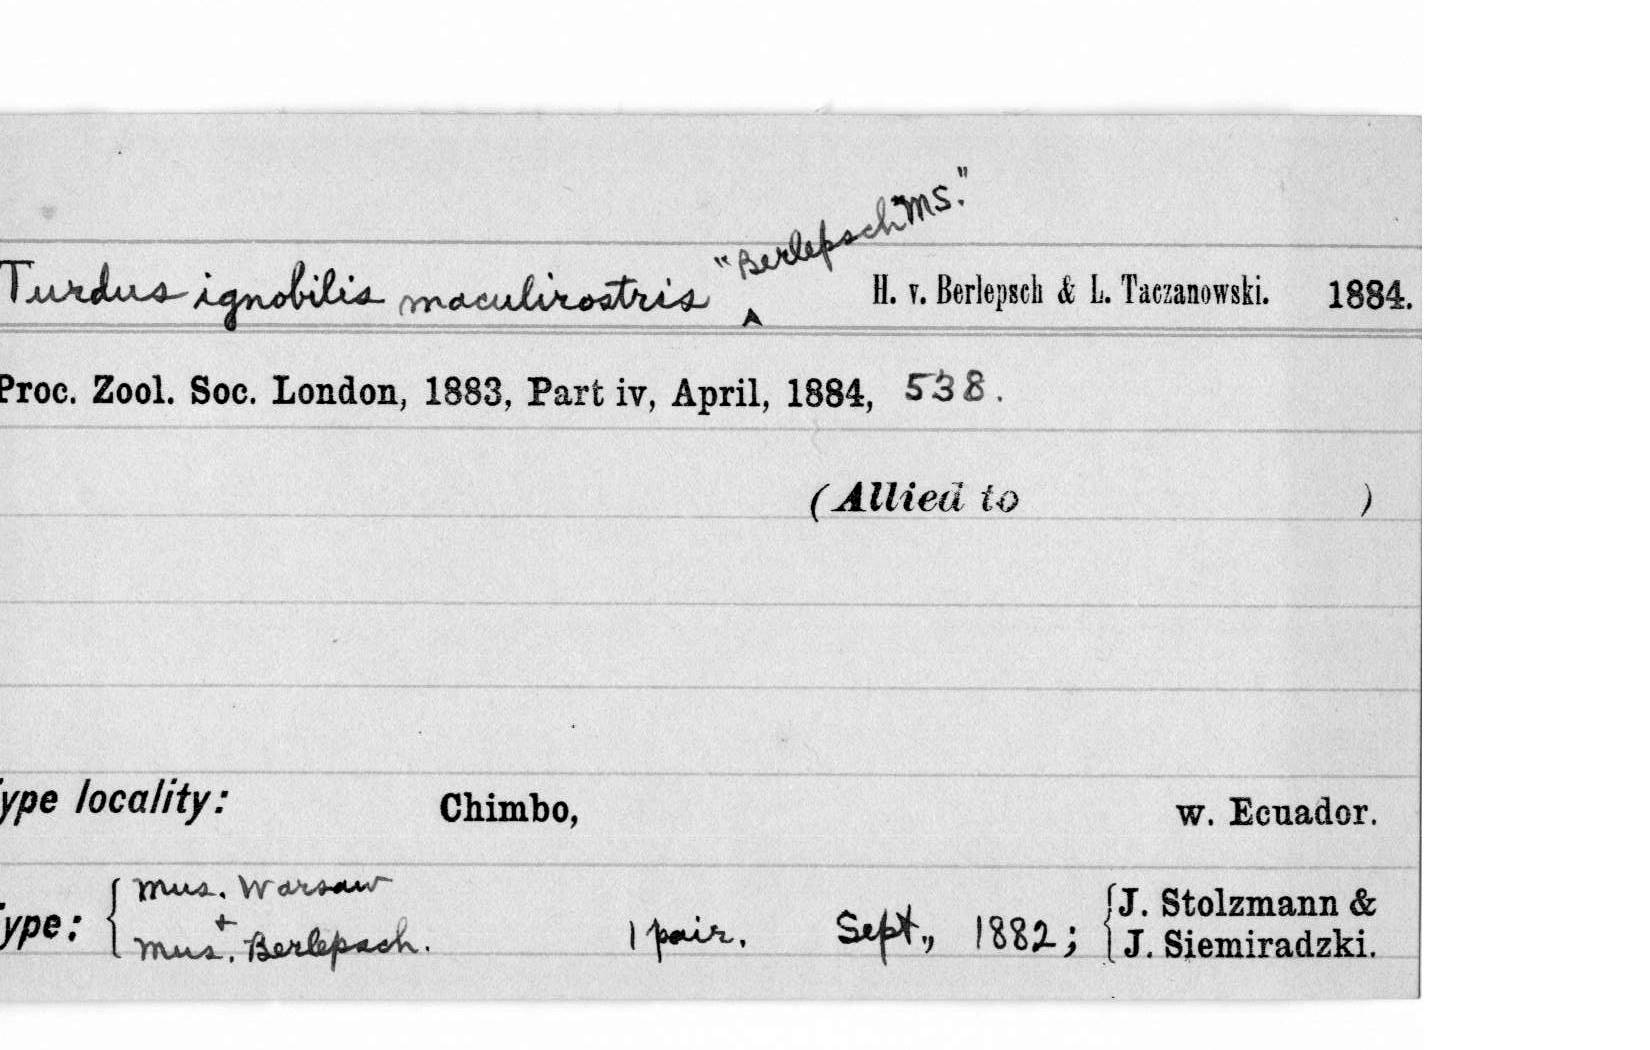 "Berlepsch MS."
Turdus ignobilis maculirostris ^ H. v. Berlepsch & L. Taczanowski. 1884.
Proc. Zool. Soc. London, 1883, Part iv, April, 1884, 538.
(Allied to )
ype locality: Chimbo, w. Ecuador.
ype: { Mus. Warsaw + Mus. Berlepsch. 1 pair. Sept., 1882; { J. Stolzmann & J. Siemiradzki.